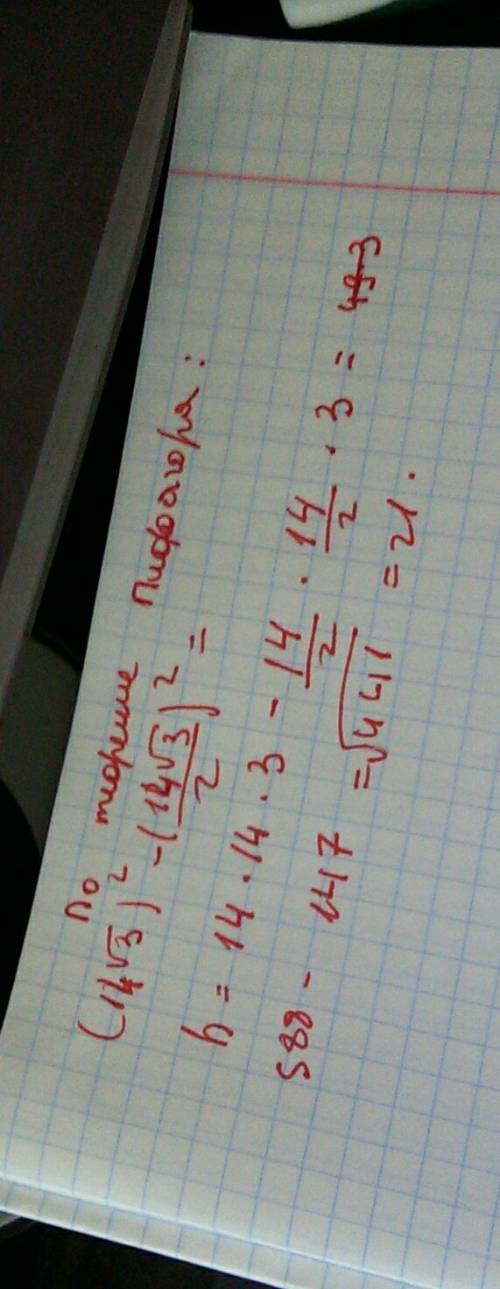 по теореме пифагора:
(14√3)² - (14√3/2)² =
h = 14 · 14 · 3 - 14/2 · 14/2 · 3 = 493
588 - 147 = √441 = 21.